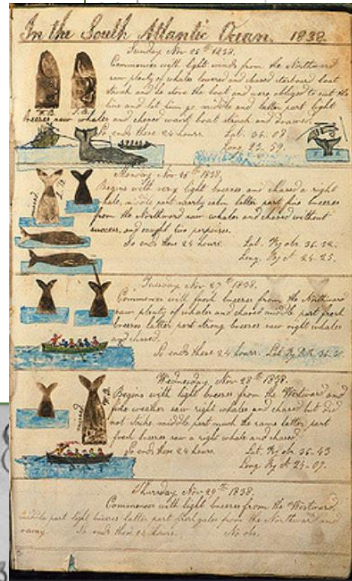 In the South Atlantic Ocean. 1838
Sunday Nov 25th 1838.
Commences with light winds from the Northward
saw plenty of whales lowered and chased starboard boat
struck and the boat and were obliged to cut the
line and let him go middle and latter part light
breezes and chased waist boat struck and drawed
So ends these 24 hours Lat. 36.08
Long 23.59.
Monday Nov 26th 1838.
Begins with very light breezes and chased a right
whale, middle part nearly calm latter part fine breezes
from the Northward saw whales and chased without
success, and caught two porpoises.
So ends these 24 hours Lat. By obs. 36.32.
Long. By 24.25.
Tuesday Nov 27th 1838.
Commences with fresh breezes from the Northward
saw plenty of whales and chased middle part fresh
breezes latter part strong breezes saw right whales
and chased.
So ends these 24 hours. Lat. By 36.
Wednesday, Nov 28th 1838.
Begins with light breezes from the Westward and
weather saw right whales and chased but did
not strike middle part much the same latter part
fresh breezes saw a right whale and chased
So ends these 24 hours Lat. By obs. 36.43
Long. By 24.07.
Thursday Nov 29th 1838.
Commences with light breezes from the Westward,
middle part light breezes latter part from the Northward and
So ends these 24 hours. No obs.